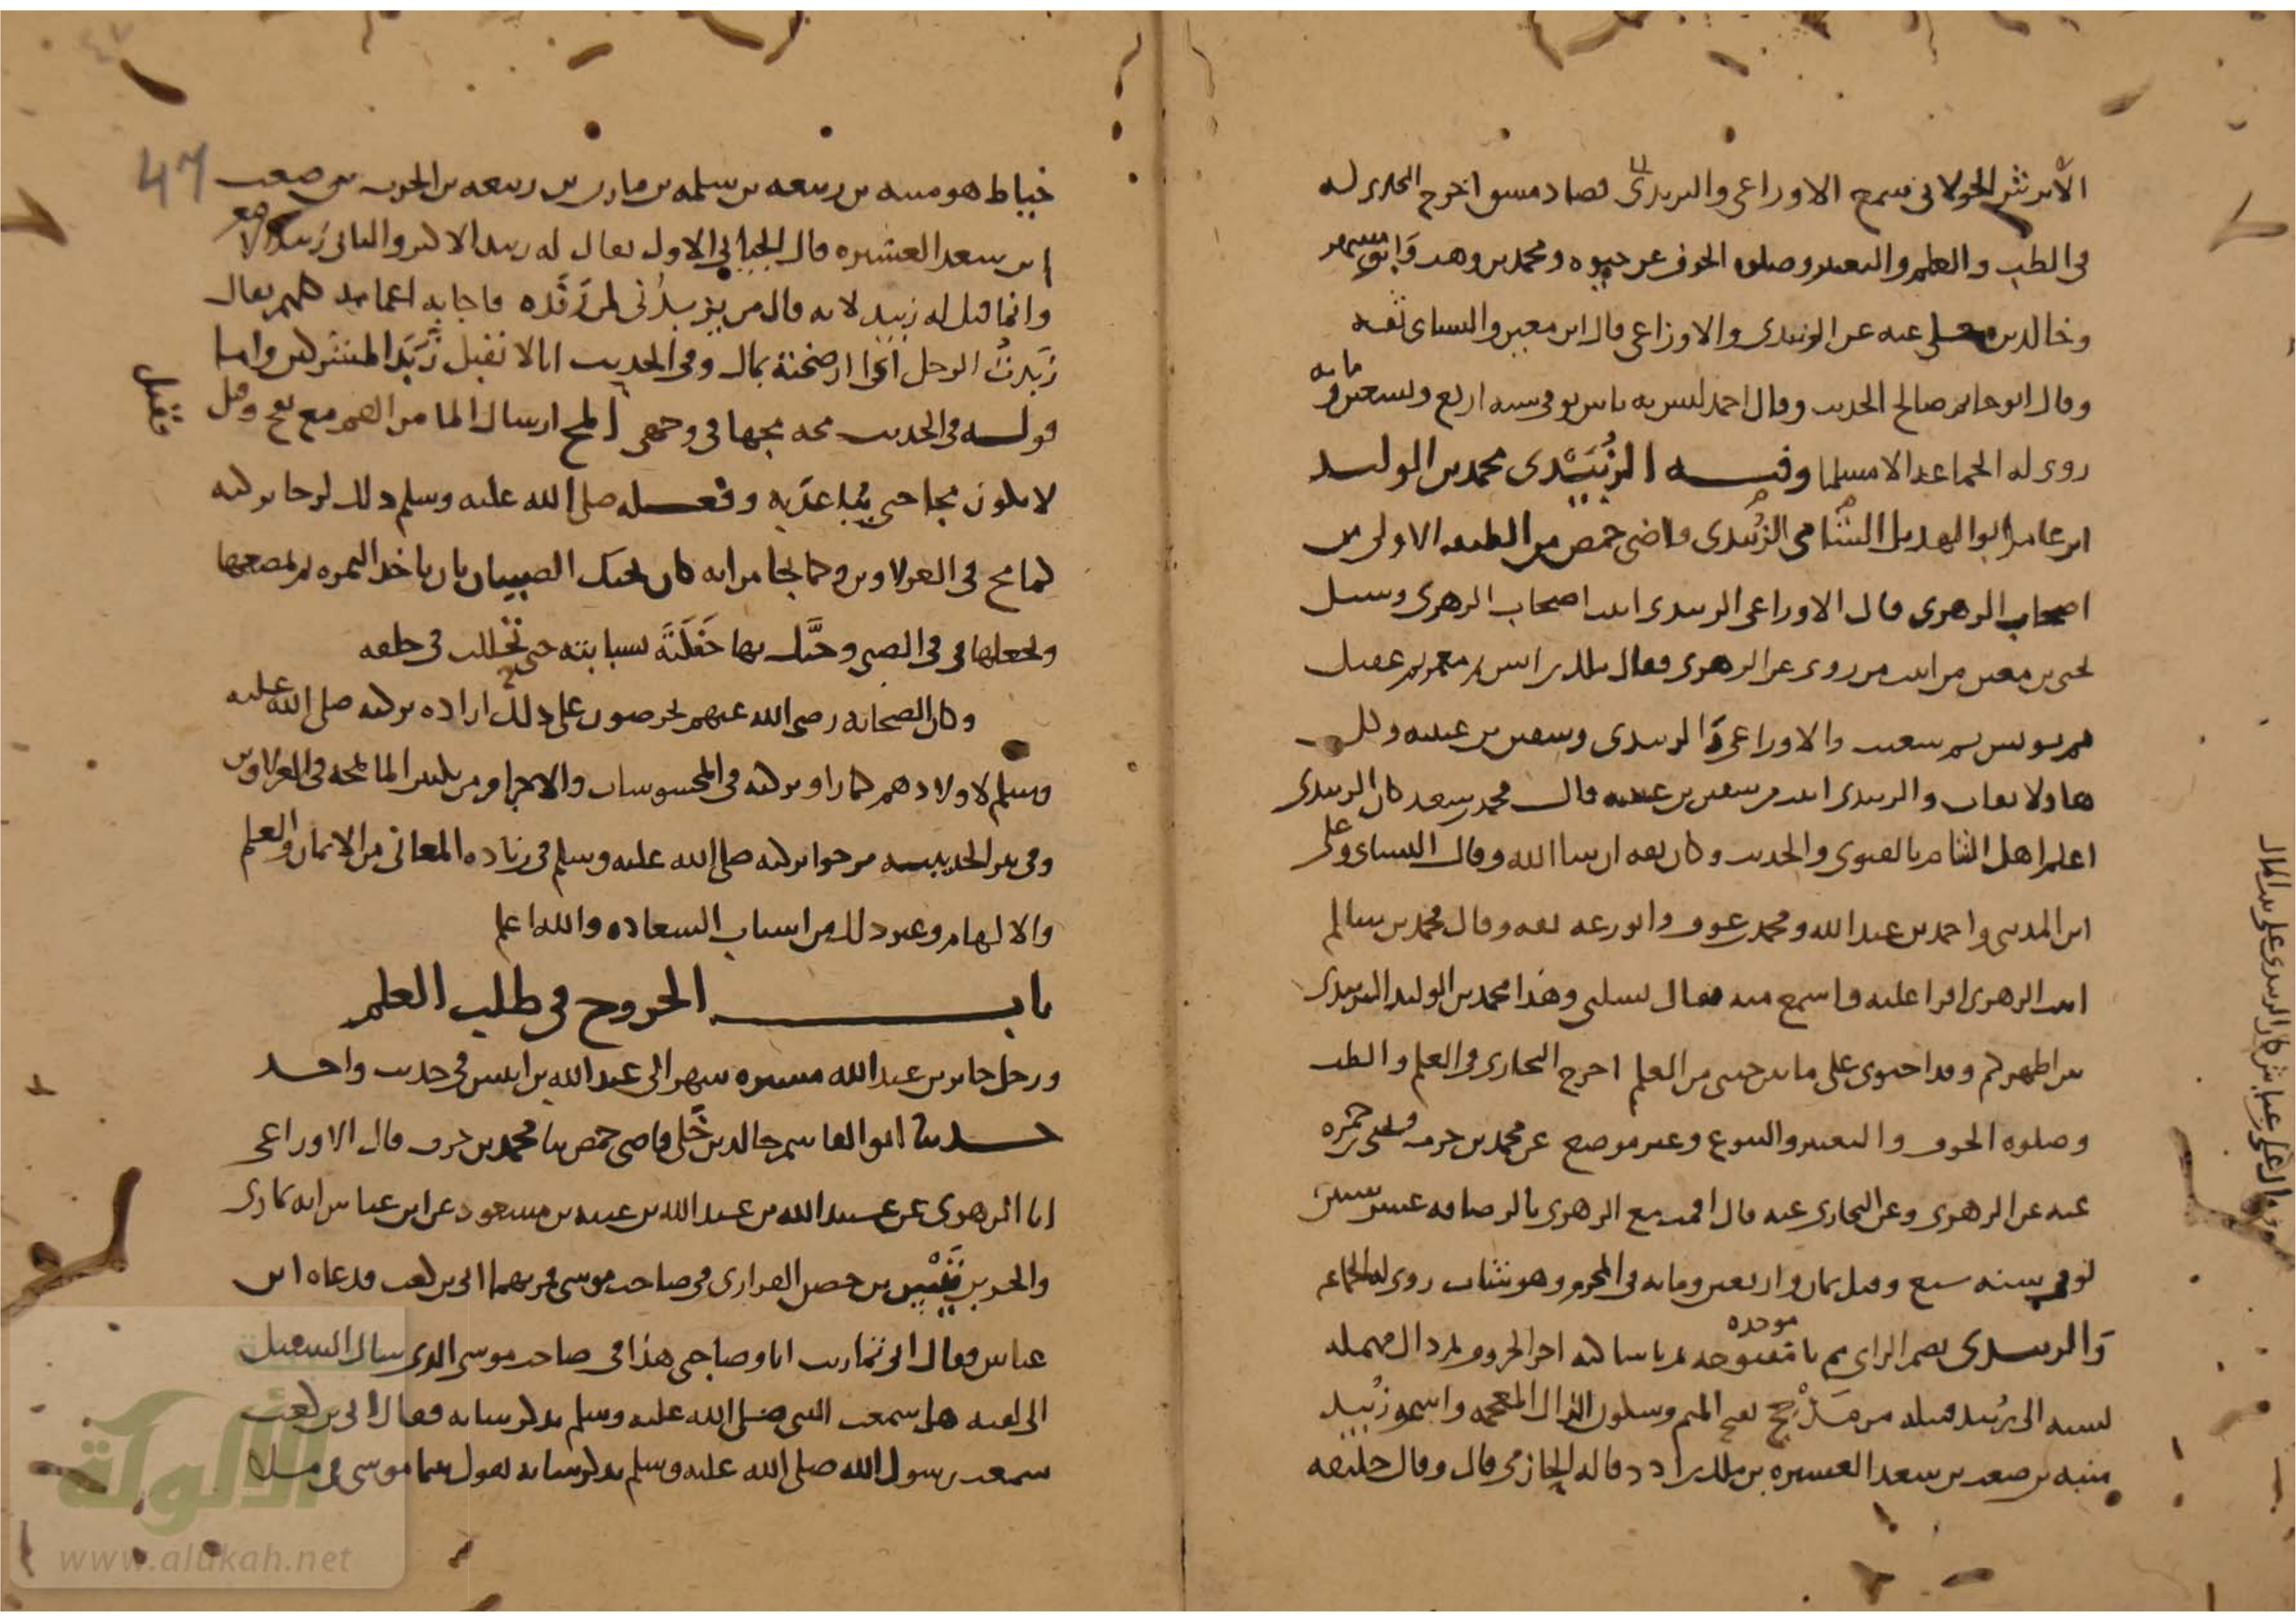 الأبرش الخولاني سمع الاوزاعي والزبيدي قضا دمشق اخرج البخاري له
في الطب و العلم والتعبير وصلوه الخوف عن حيوه ومحمد بن وهب وابو مسهر
وخالد بن خلي عنه عن الزبيدي والاوزاعي قال ابن معين والنساى ثقه
وقال ابو حاتم صالح الحديث وقال احمد ليس به باس توفى سنه اربع وتسعين ومايه
روى له الجماعه الا مسلما وفيه الزُّبَيْدى محمد بن الوليد
ابن عامر ابو الهذيل الشامى الزُبيدى قاضى حمص من الطبقه الاولى من
اصحاب الزهرى قال الاوزاعى الزبيدى اثبت اصحاب الزهرى وسيل
يحيى بن معين من اثبت من روى عن الزهرى فقال ملك بن انس ثم معمر ثم عقيل
ثم يونس ثم شعيب والاوزاعى والزبيدى وسفين بن عيينه وكل
هاولا ثقات والزبيدى اثبت من سفين بن عيينه قال محمد بن سعد كان الزبيدى
اعلم اهل الشام بالفتوى والحديث وكان ثقه ان شا الله وقال النساى وعلى
ابن المدينى واحمد بن عبد الله ومحمد بن عوف وابو زرعه ثقه وقال محمد بن سالم
اتيت الزهرى اقرا عليه واسمع منه فقال تسلنى وهذا محمد بن الوليد الزبيدى
بين اظهركم وقد احتوى على ما بين جنبى من العلم اخرج البخارى فى العلم والطب
وصلوه الخوف والتعبير والبيوع وغير موضع عن محمد بن حرب ويحيى بن حمزه
عنه عن الزهرى وعن البخارى عنه قال اقمت مع الزهرى بالرصافه عشر سنين
توفى سنه سبع وقيل ثمان واربعين ومايه فى المحرم وهو شاب روى له الجماعه
والزبيدى بضم الزاى ثم با موحده مفتوحه ثم يا ساكنه اخر الحروف ثم دال مهمله
نسبه الى زُبيد قبيله من مَذْحِج بفتح الميم وسكون الذال المعجمه واسمه زُبيد
منبه بن صعب بن سعد العشيره بن ملك بن ادد قاله الحازمى قال وقال خليفه
47
خياط هو منبه بن ربيعه بن سلمه بن مازن بن ربيعه بن الحرث بن صعب
ابن سعد العشيره قال الجيانى الاول يقال له زبيد الاكبر والثانى زبيد الاصغر
وانما قيل له زبيد لانه قال من يزبدُنى لمن رَفَده فاجابه اعمامه كلهم يقال
زَبَدتُ الرجل اى ارضخته بمال وفى الحديث انا لا نقبل زَبَد المشركين واما
قوله فى الحديث مجه مجها فى وجهى المج ارسال الما من الفم مع نفخ وقيل
لا يكون مجا حتى يُباعَد به وفعله صلى الله عليه وسلم ذلك لرجا بركته
كما مج فى العزلاوين وكما جا من انه كان يحنك الصبيان بان ياخذ التمره ثم يمضغها
ويجعلها فى فى الصبى وحنَّك بها حَنَكَهَ بسبابته حتى تحللت فى حلقه
وكان الصحابه رضى الله عنهم يحرصون على ذلك اراده بركته صلى الله عليه
وسلم لاولادهم كما راو بركته فى المحسوسات والاجرام من تكثير الما بمجه فى العزلاوين
وفى بير الحديبيه فرجوا بركته صلى الله عليه وسلم فى زياده المعانى من الايمان والعلم
والالهام وغير ذلك من اسباب السعاده والله اعلم
باب الخروج فى طلب العلم
ورحل جابر بن عبد الله مسيره شهر الى عبد الله بن انيس فى حديث واحد
حدثنا ابو القاسم خالد بن خَلى قاضى حمص ثنا محمد بن حرب قال الاوزاعى
انا الزهرى عن عبيد الله بن عبد الله بن عتبه بن مسعود عن ابن عباس انه تمارى
والحر بن قَيْس بن حصن الفزارى فى صاحب موسى فمر بهما ابى بن كعب فدعاه ابن
عباس فقال انى تماريت انا وصاحبى هذا فى صاحب موسى الذى سال السبيل
الى لقيه هل سمعت النبى صلى الله عليه وسلم يذكر شانه فقال ابى بن كعب
سمعت رسول الله صلى الله عليه وسلم يذكر شانه يقول بينما موسى فى ملا
الألوكة
www.alukah.net